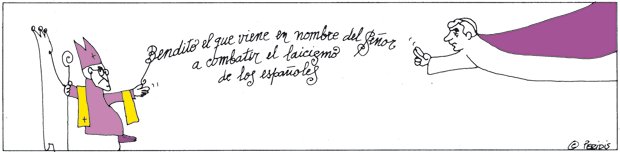 Bendito el que viene en nombre del Señor
a combatir el laicismo
de los españoles
© PERIDIS